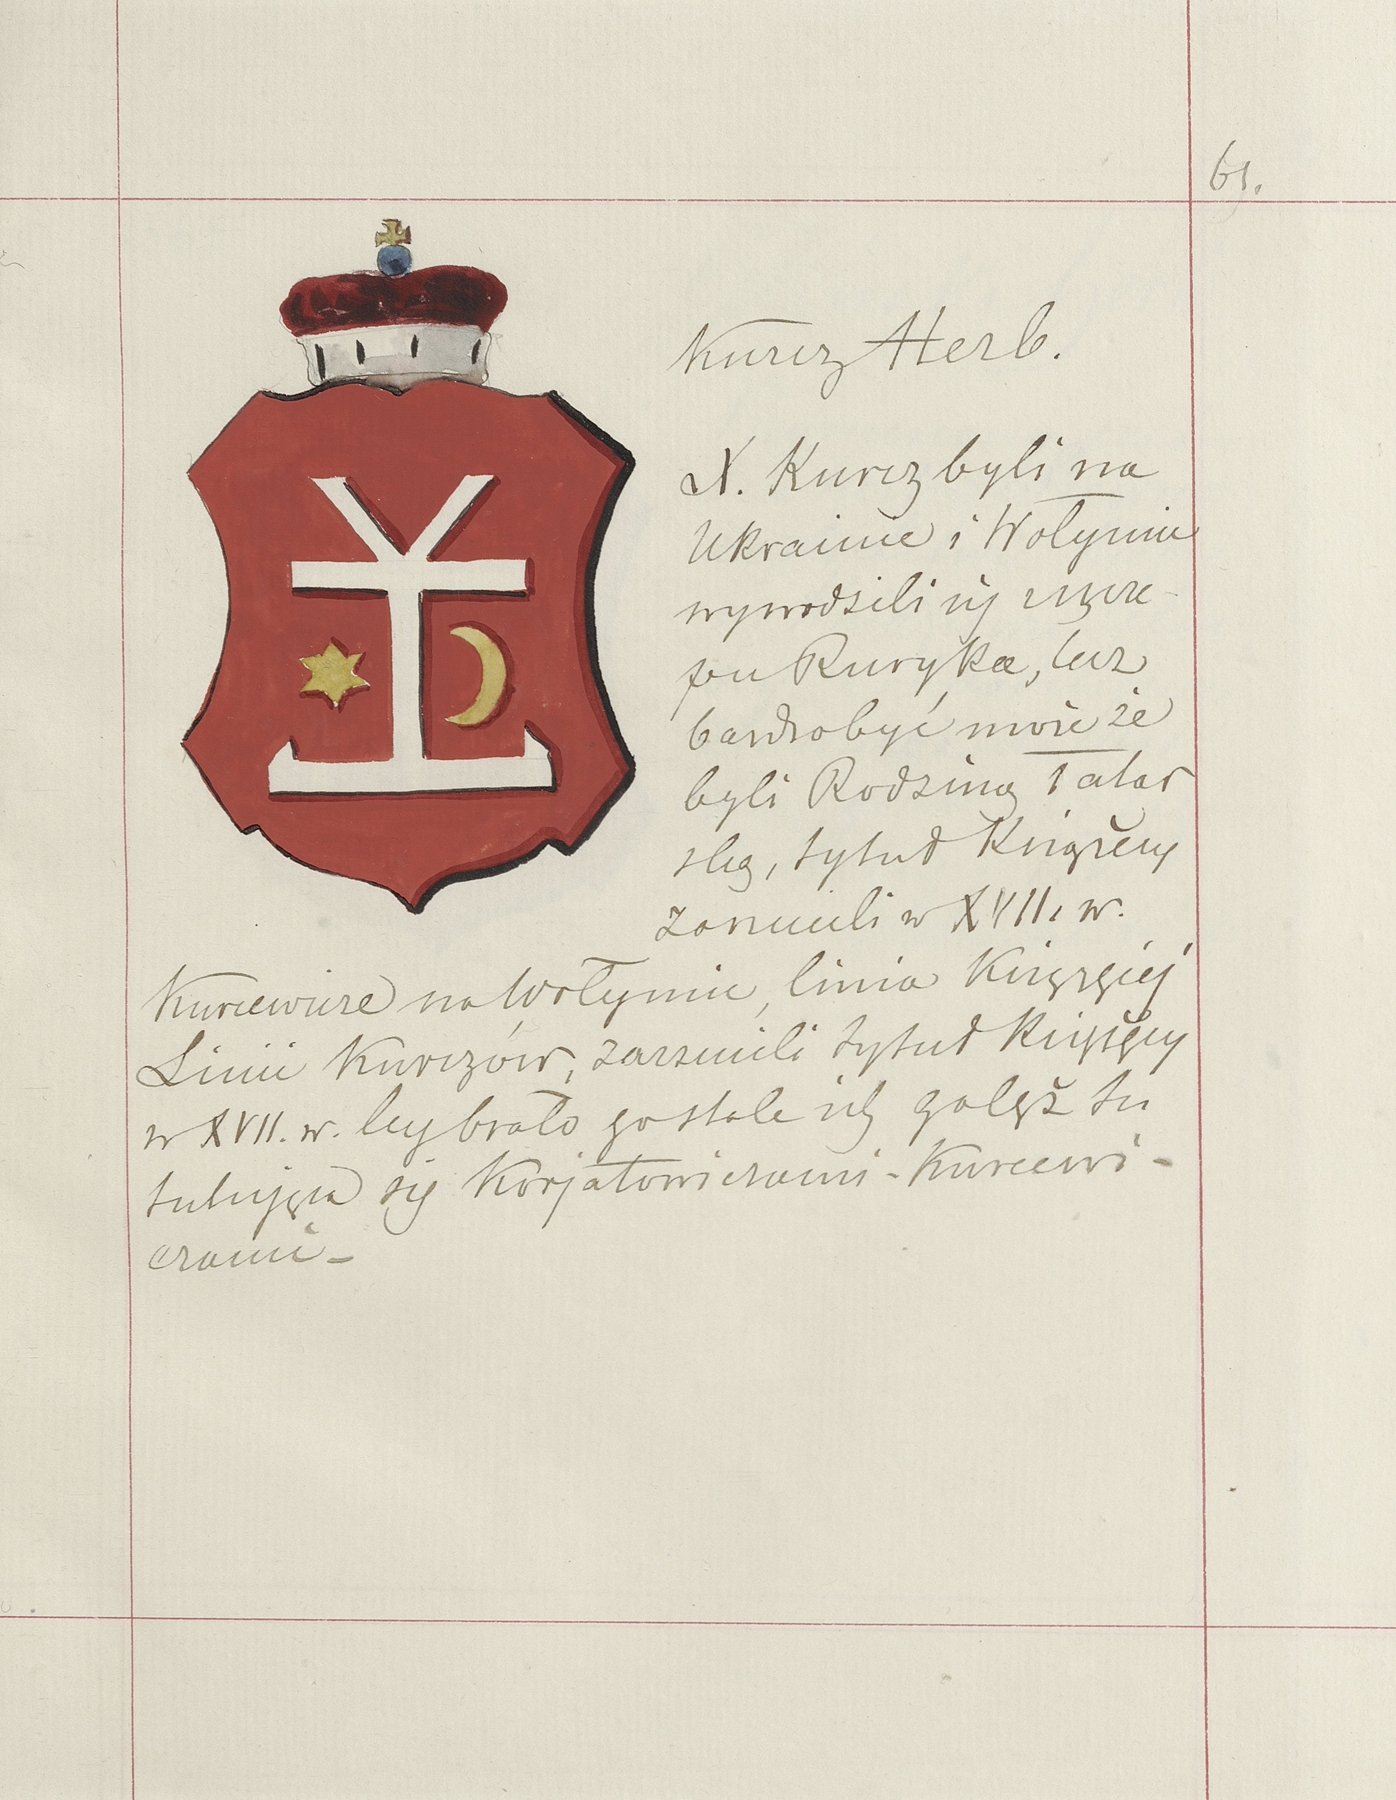 61.
Kurcz Herb.
X. Kurcz byli na
Ukrainie i Wołyniu
wywodzili się szcze-
pu Ruryka, lecz
bardzo być może że
byli Rodziną Tatar
ską, tytuł Książęcy
zarzucili w XVII. w.
Kurcewicze na Wołyniu, linia Książęcej
Linii Kurczów, zarzucili tytuł Książęcy
w XVII. w. ich gałęż tu
tulująca się Korjatowiczami-Kurcewi-
czami-